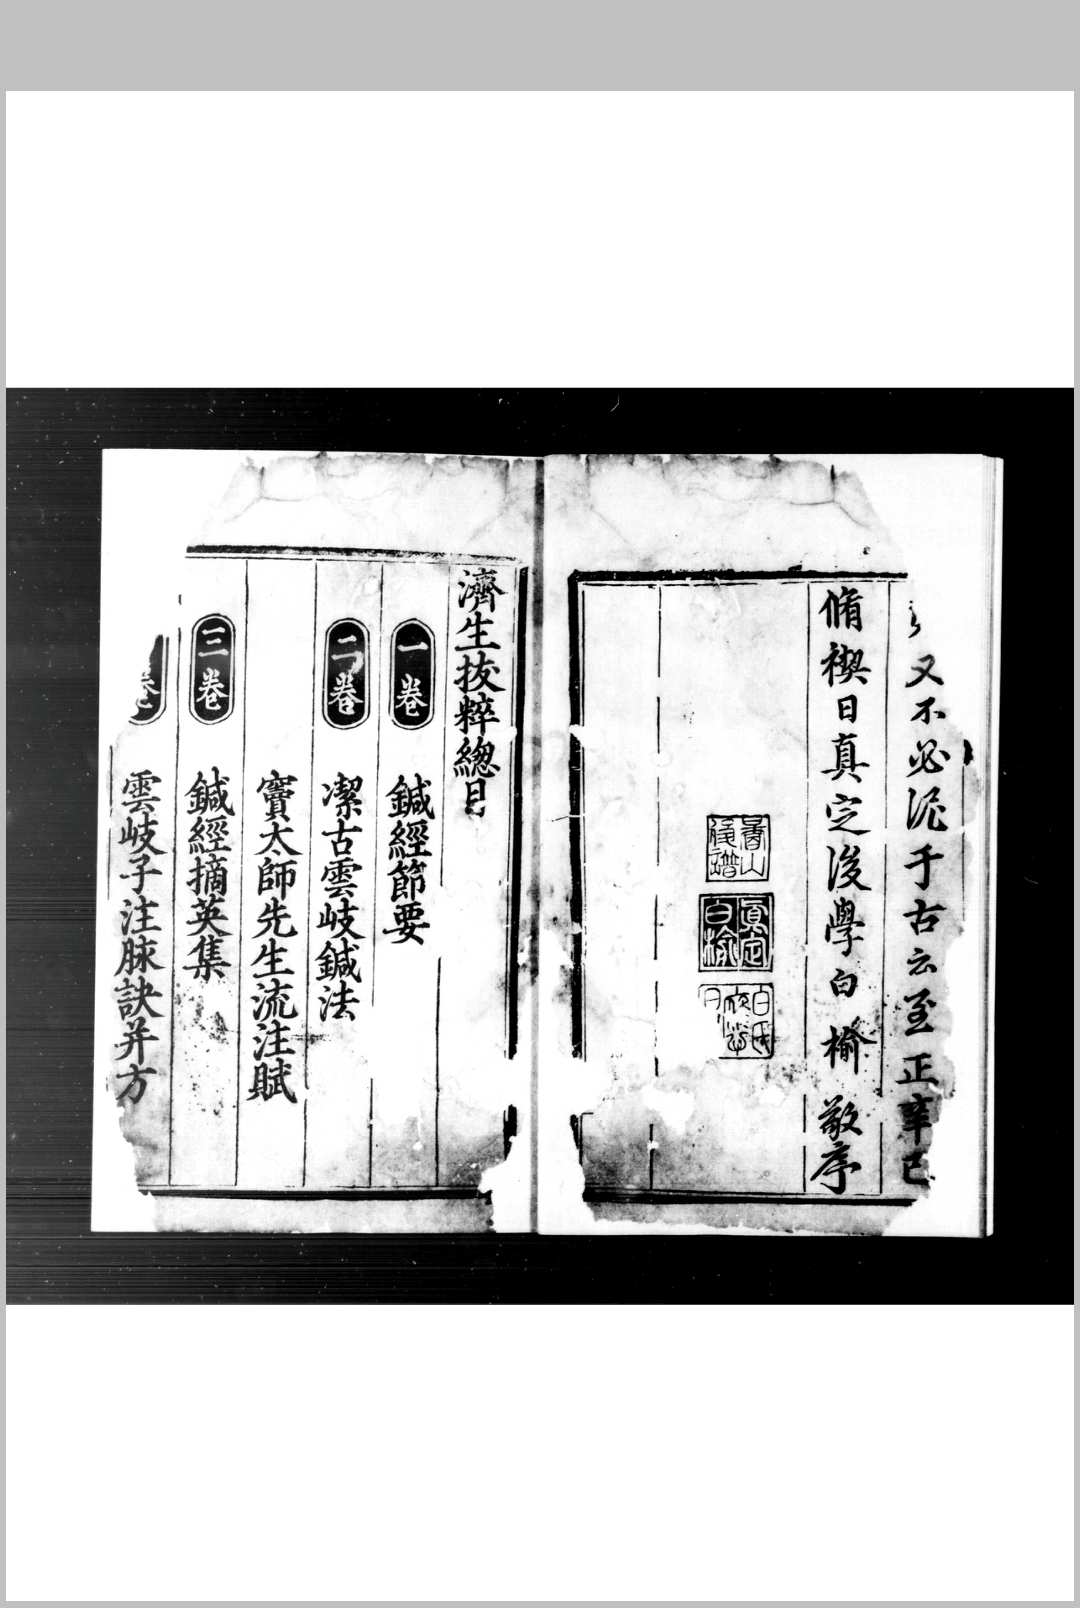 又不必泥于古云至正辛巳
脩禊日真定後學白榆敬序
真定
白榆
濟生拔粹總目
一卷 鍼經節要
二卷 潔古雲岐鍼法
竇太師先生流注賦
三卷 鍼經摘英集
卷 雲岐子注脉訣并方